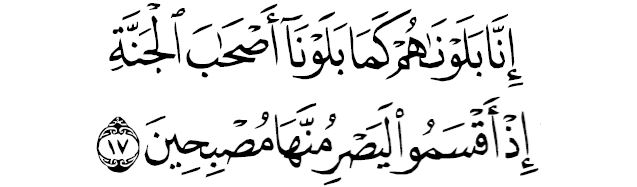 إِنَّا بَلَوْنَاهُمْ كَمَا بَلَوْنَآ أَصْحَابَ ٱلْجَنَّةِ
إِذْ أَقْسَمُوا۟ لَيَصْرِمُنَّهَا مُصْبِحِينَ ١٧